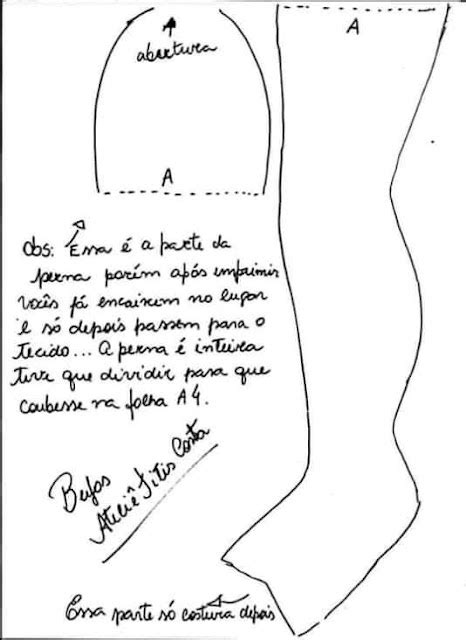 abertura
A
A
Obs: Essa é a parte da
perna porém após imprimir
vocês já encaixem no lugar
e só depois passem para o
tecido... A perna é inteira
tive que dividir para que
coubesse na folha A4.
Beijos
Ateliê Titis Costa
Essa parte só costura depois